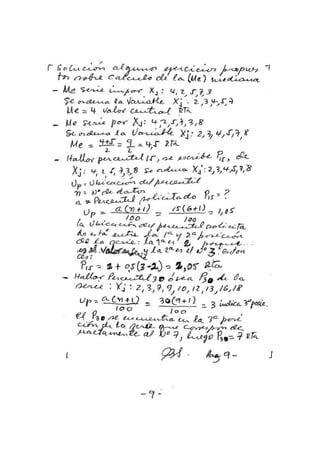 Solución algunos ejercicios propues
tos sobre Calculo de la (Me) mediana
- Me Serie impar Xj: 4, 2, 5, 7, 3
Se ordena la Variable Xj: 2, 3, 4, 5, 7
Me = 4 Valor central Rta
- Me Serie par Xj: 4, 2, 5, 7, 3, 8
Se ordena la Variable Xj: 2, 3, 4, 5, 7, 8
Me = 4+5/2 = 9/2 = 4,5 Rta
- Hallar percentil 15, se escribe P15, de
Xj: 4, 2, 5, 7, 3, 8 Se ordena Xj: 2, 3, 4, 5, 7, 8
Up = Ubicación del percentil
n = Nº de datos
a = Percentil solicitado P15 = ?
Up = a(n+1)/100 = 15(6+1)/100 = 1,05
la Ubicación del percentil solicita
do está entre la 1ª y 2ª posición
de la serie: la 1ª es 2, porque
es el valor y la 2ª es el Nº 3. enton
ces:
P15 = 2 + 0,5(3-2) = 2,05 Rta
- Hallar Percentil 30 ó sea P30 de la
serie: Xj: 2, 3, 7, 9, 10, 12, 13, 16, 18
Up = a(n+1)/100 = 30(9+1)/100 = 3 indica 3ª posic.
el P30 se encuentra en la 3ª posi
ción de la serie que corresponde
exactamente al Nº 7, luego P30 = 7 Rta
Pag 9-
- 9 -